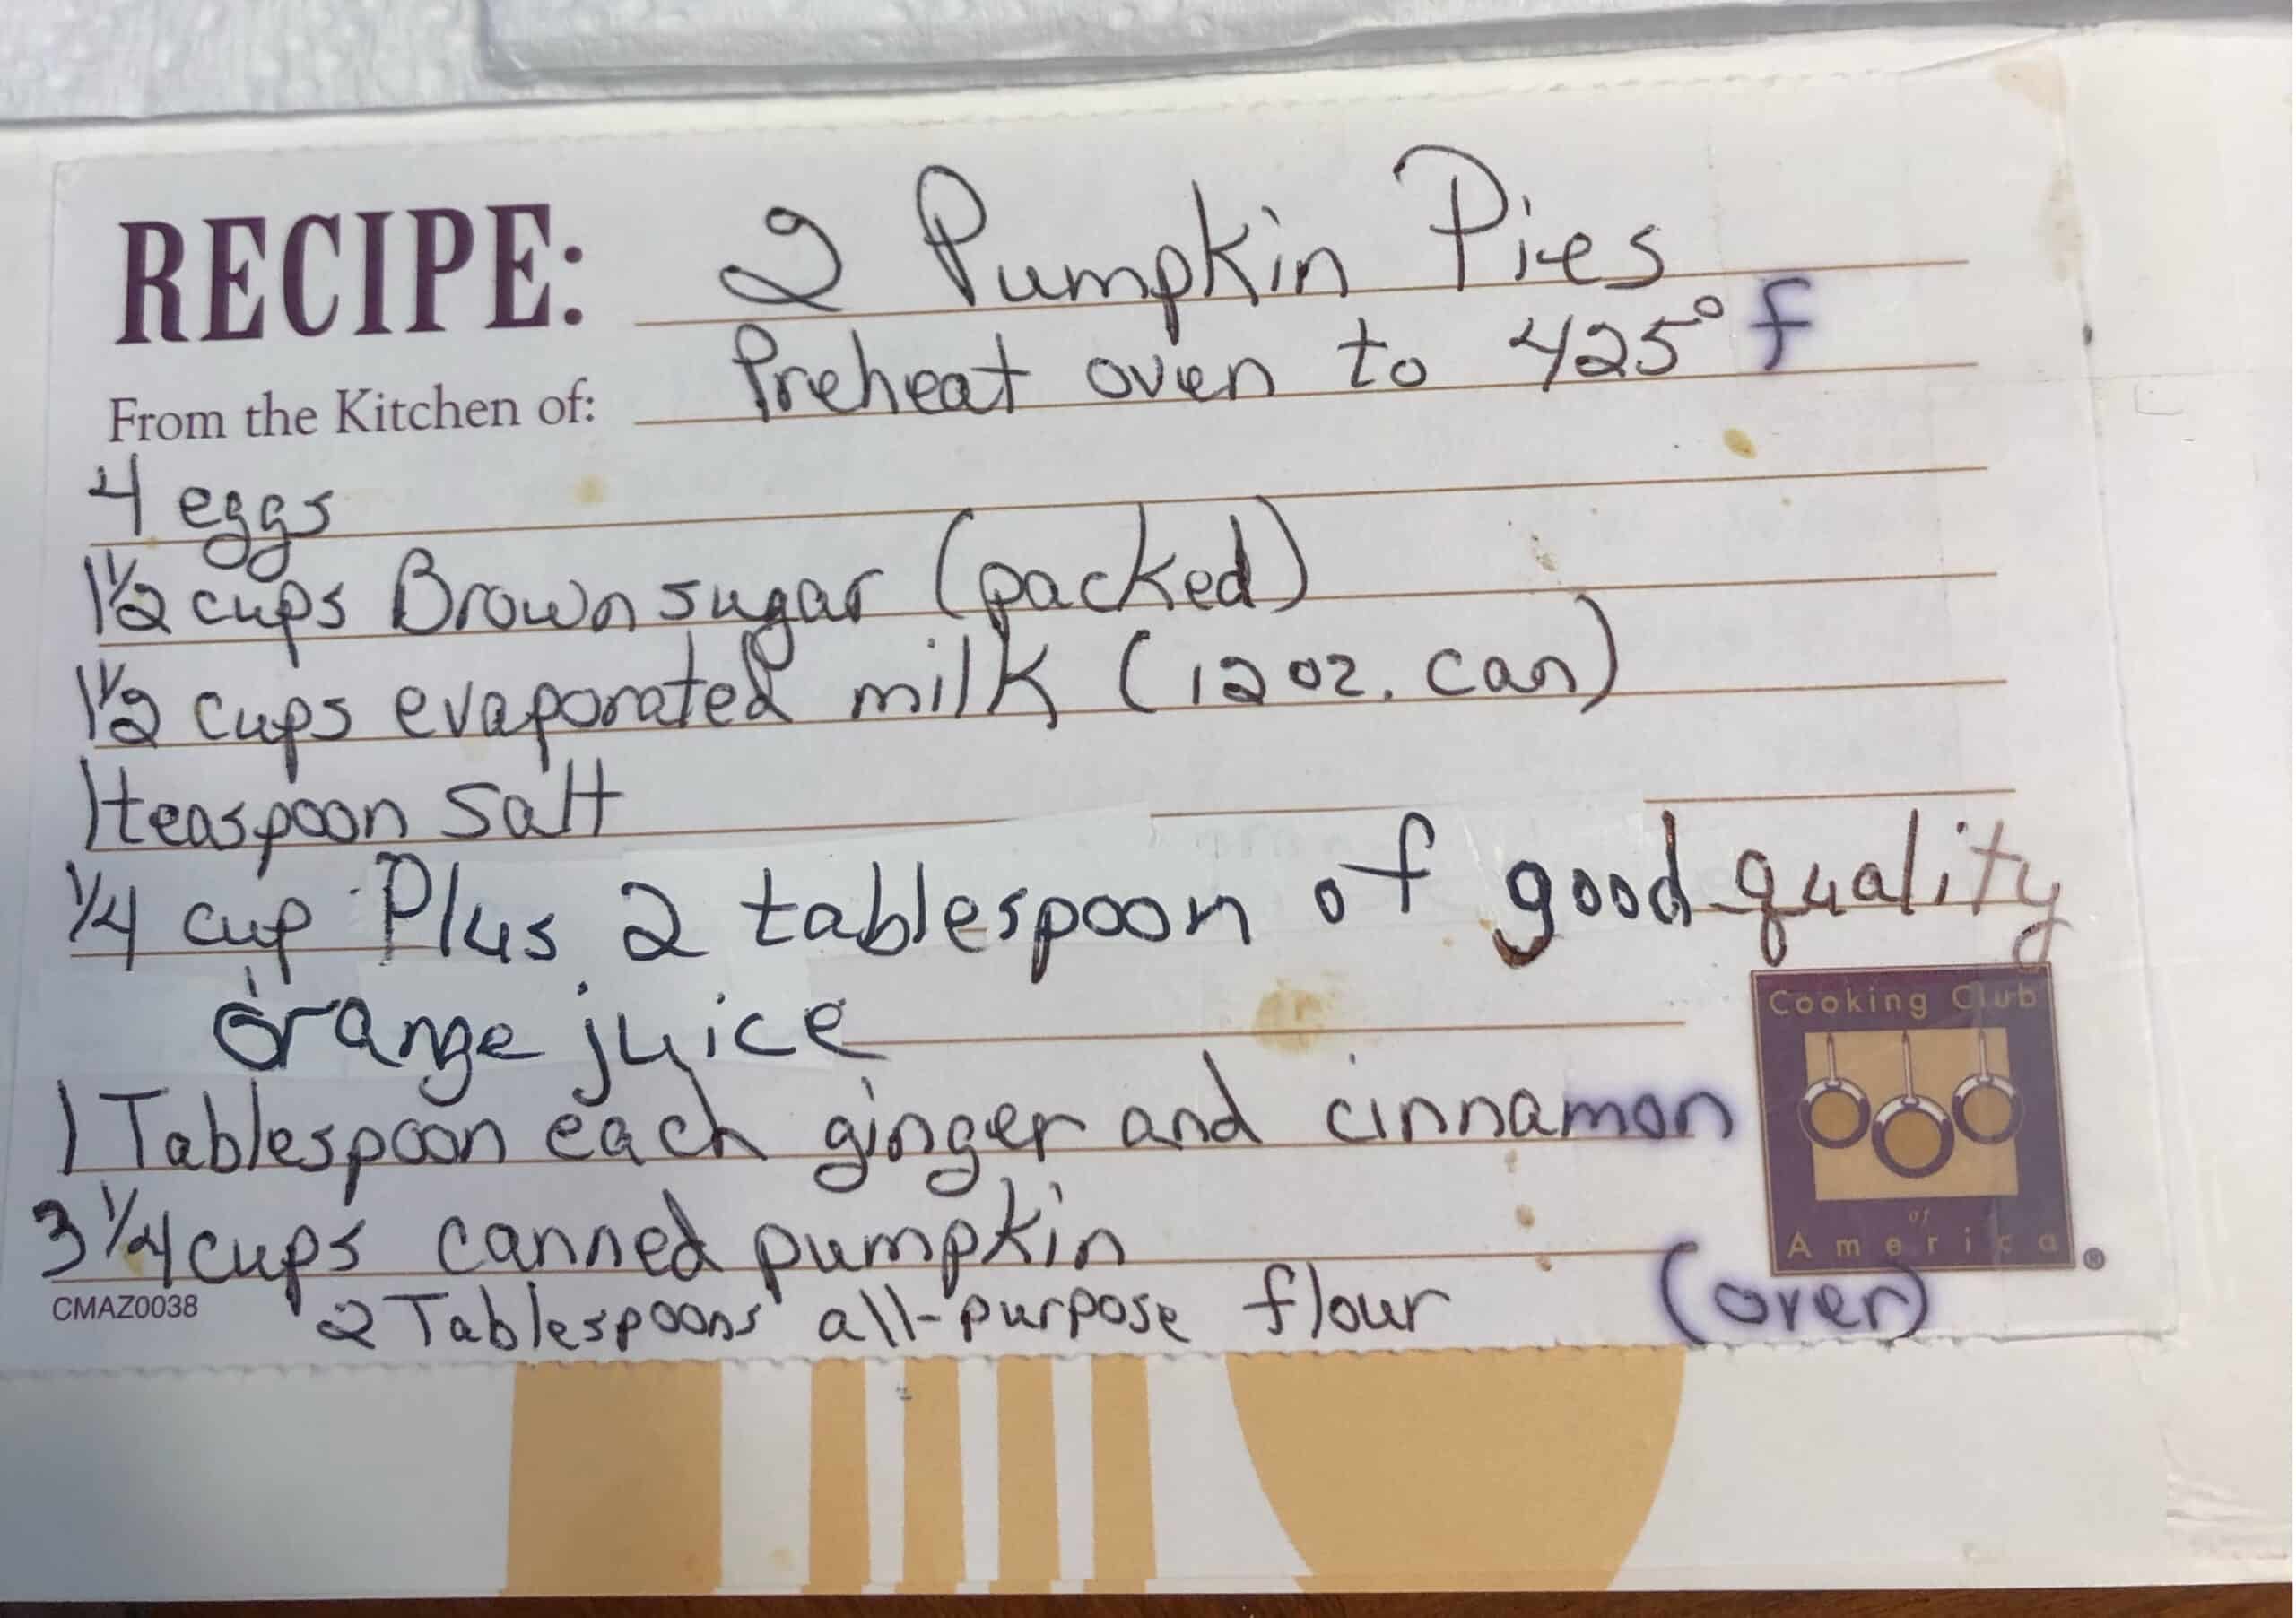 RECIPE: 2 Pumpkin Pies
From the Kitchen of: Preheat oven to 425° f
4 eggs
1 1/2 cups Brown sugar (packed)
1 1/2 cups evaporated milk (12 oz. can)
1 teaspoon salt
1/4 cup Plus 2 tablespoon of good quality
orange juice
1 Tablespoon each ginger and cinnamon
3 1/4 cups canned pumpkin
2 Tablespoons all-purpose flour (over)
CMAZ0038
Cooking Club
of
America®